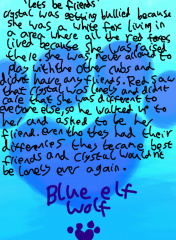 'lets be friends'
crystal was getting bullied because
she was a white fox living in
a area where all the red foxes
lived because she was raised
there. she was never allowed to
play with the other cubs and
didnt have any friends. Red saw
that crystal was lonely and didnt
care that she was different to
everyone else, so he walked up to
her and asked to be her
friend. even tho they had their
differences they became best
friends and crystal wouldnt
be lonely ever again.
Blue elf
wolf